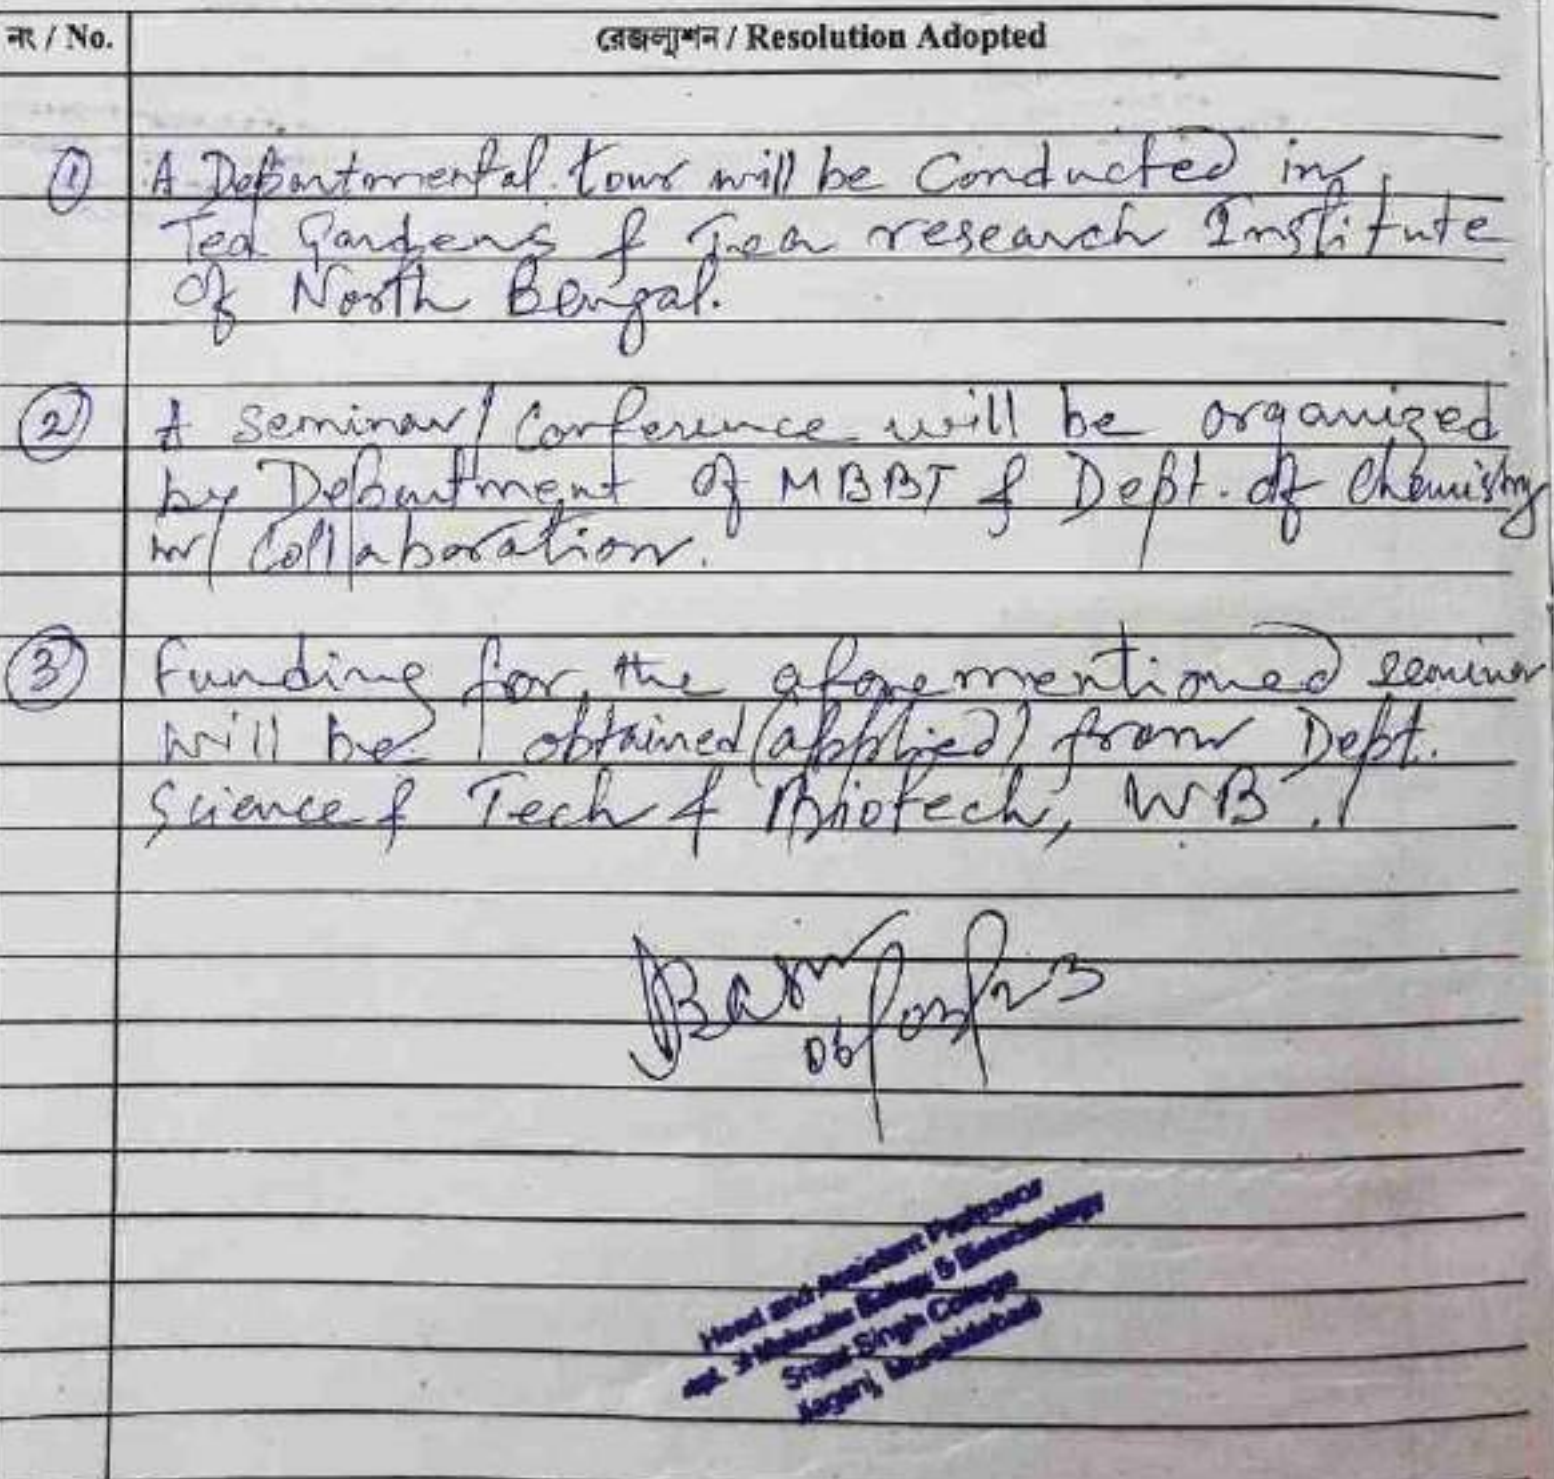 নং / No. রেজল্যুশন / Resolution Adopted
① A Departmental tour will be Conducted in
Tea Gardens & Tea research Institute
of North Bengal.
② A seminar/Conference will be organized
by Department of MBBT & Dept. of Chemistry
in Collaboration.
③ Funding for the aforementioned seminar
will be obtained (applied) from Dept.
Science & Tech & Biotech, WB.
06/03/23
Head and Assistant Professor
Dept. of Molecular Biology & Biotechnology
Singh College
Jiaganj, Murshidabad